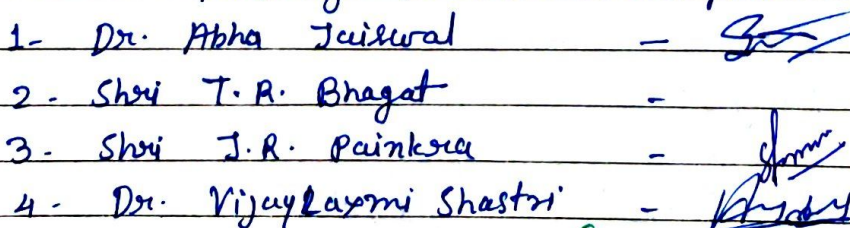 1- Dr. Abha Jaiswal -
2- Shri T.R. Bhagat -
3- Shri J.R. Painkra -
4- Dr. Vijaylaxmi Shastri -